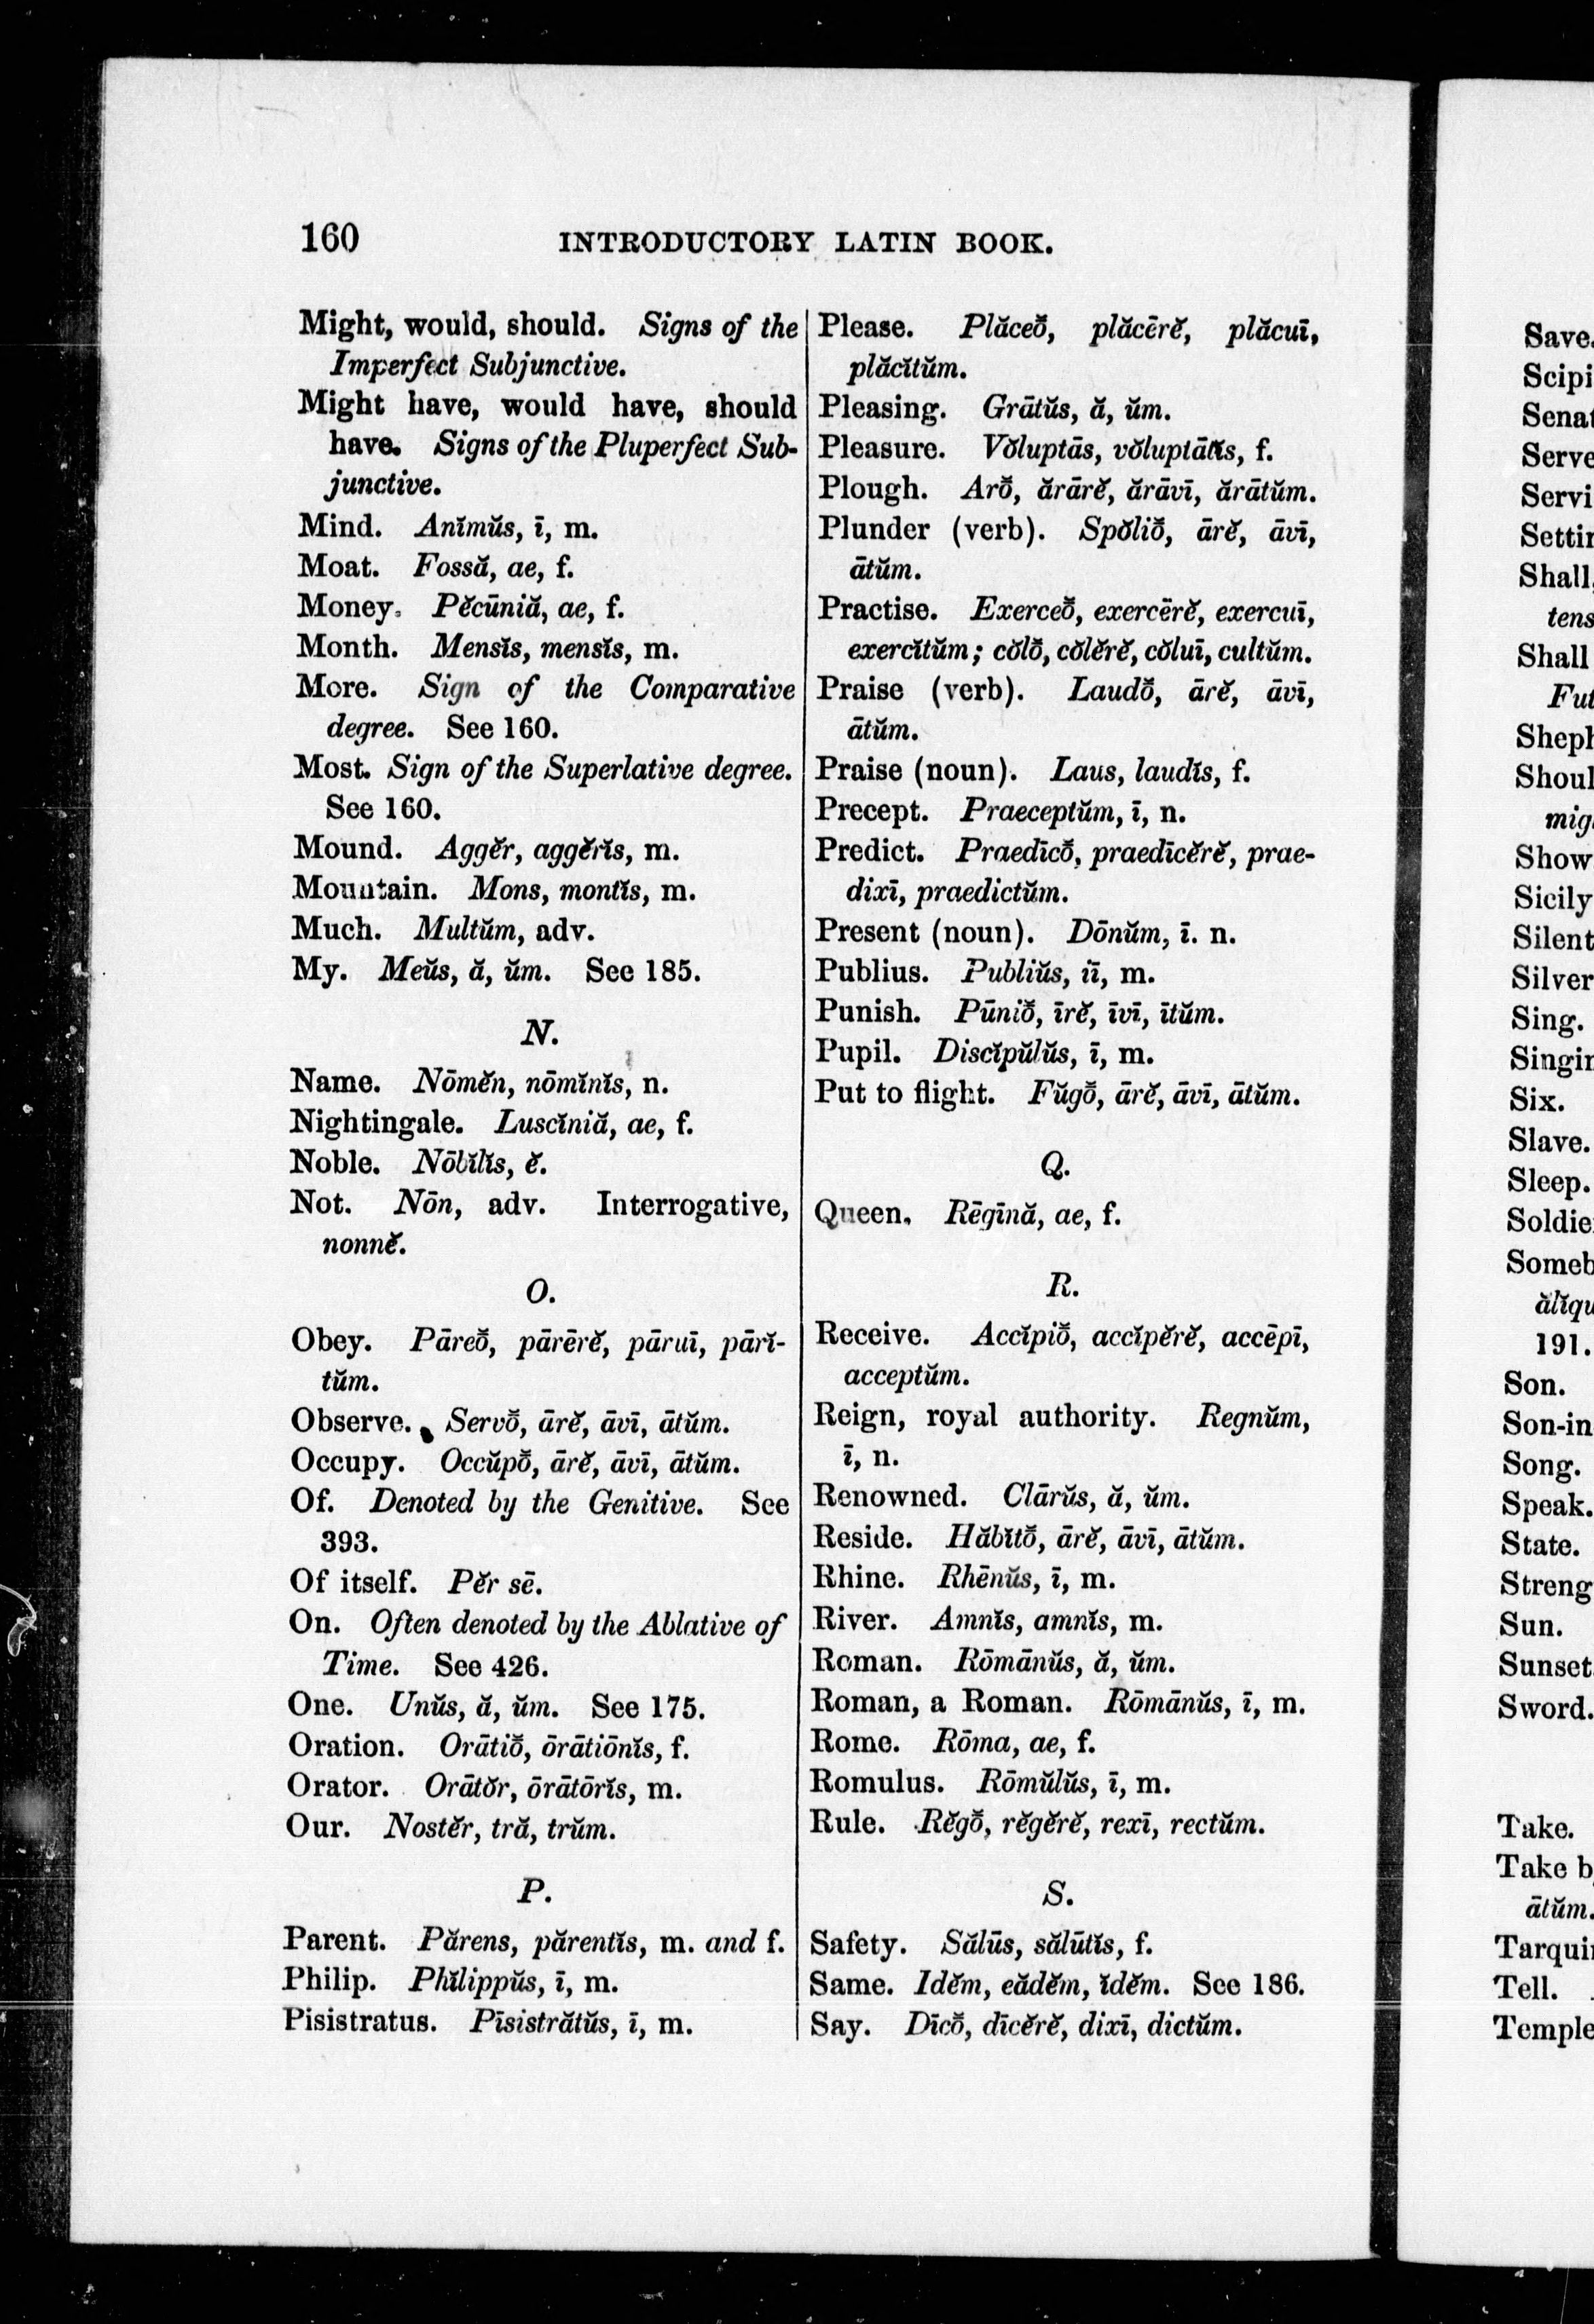 160 INTRODUCTORY LATIN BOOK.
Might, would, should. Signs of the
Imperfect Subjunctive.
Might have, would have, should
have. Signs of the Pluperfect Sub-
junctive.
Mind. Anĭmŭs, ī, m.
Moat. Fossă, ae, f.
Money. Pĕcūniă, ae, f.
Month. Mensĭs, mensĭs, m.
More. Sign of the Comparative
degree. See 160.
Most. Sign of the Superlative degree.
See 160.
Mound. Aggĕr, aggĕrĭs, m.
Mountain. Mons, montĭs, m.
Much. Multŭm, adv.
My. Meŭs, ă, ŭm. See 185.
N.
Name. Nōmĕn, nōmĭnĭs, n.
Nightingale. Luscĭniă, ae, f.
Noble. Nōbĭlĭs, ĕ.
Not. Nōn, adv. Interrogative,
nonnĕ.
O.
Obey. Pāreō̆, pārērĕ, pāruī, pārĭ-
tŭm.
Observe. Servō̆, ārĕ, āvī, ātŭm.
Occupy. Occŭpō̆, ārĕ, āvī, ātŭm.
Of. Denoted by the Genitive. See
393.
Of itself. Pĕr sē.
On. Often denoted by the Ablative of
Time. See 426.
One. Unŭs, ă, ŭm. See 175.
Oration. Orātiō̆, ōrātiōnĭs, f.
Orator. Orātŏr, ōrātōrĭs, m.
Our. Nostĕr, tră, trŭm.
P.
Parent. Părens, părentĭs, m. and f.
Philip. Phĭlippŭs, ī, m.
Pisistratus. Pīsistrătŭs, ī, m.
Please. Plăceō̆, plăcērĕ, plăcuī,
plăcĭtŭm.
Pleasing. Grātŭs, ă, ŭm.
Pleasure. Vŏluptās, vŏluptātĭs, f.
Plough. Arō̆, ărārĕ, ărāvī, ărātŭm.
Plunder (verb). Spŏliō̆, ārĕ, āvī,
ātŭm.
Practise. Exerceō̆, exercērĕ, exercuī,
exercĭtŭm; cŏlō̆, cŏlĕrĕ, cŏluī, cultŭm.
Praise (verb). Laudō̆, ārĕ, āvī,
ātŭm.
Praise (noun). Laus, laudĭs, f.
Precept. Praeceptŭm, ī, n.
Predict. Praedīcō̆, praedīcĕrĕ, prae-
dixī, praedictŭm.
Present (noun). Dōnŭm, ī. n.
Publius. Publiŭs, iī, m.
Punish. Pūniō̆, īrĕ, īvī, ītŭm.
Pupil. Discĭpŭlŭs, ī, m.
Put to flight. Fŭgō̆, ārĕ, āvī, ātŭm.
Q.
Queen. Rēgīnă, ae, f.
R.
Receive. Accĭpiō̆, accĭpĕrĕ, accēpī,
acceptŭm.
Reign, royal authority. Regnŭm,
ī, n.
Renowned. Clārŭs, ă, ŭm.
Reside. Hăbĭtō̆, ārĕ, āvī, ātŭm.
Rhine. Rhēnŭs, ī, m.
River. Amnĭs, amnĭs, m.
Roman. Rōmānŭs, ă, ŭm.
Roman, a Roman. Rōmānŭs, ī, m.
Rome. Rōma, ae, f.
Romulus. Rōmŭlŭs, ī, m.
Rule. Rĕgō̆, rĕgĕrĕ, rexī, rectŭm.
S.
Safety. Sălūs, sălūtĭs, f.
Same. Idĕm, eădĕm, ĭdĕm. See 186.
Say. Dīcō̆, dīcĕrĕ, dixī, dictŭm.
Save.
Scipi
Senat
Serve
Servi
Settin
Shall,
tens
Shall
Fut
Sheph
Shoul
mig
Show
Sicily
Silent
Silver
Sing.
Singin
Six.
Slave.
Sleep.
Soldie
Someb
ălĭqu
191.
Son.
Son-in
Song.
Speak.
State.
Streng
Sun.
Sunset
Sword.
Take.
Take b
ātŭm.
Tarquin
Tell.
Temple